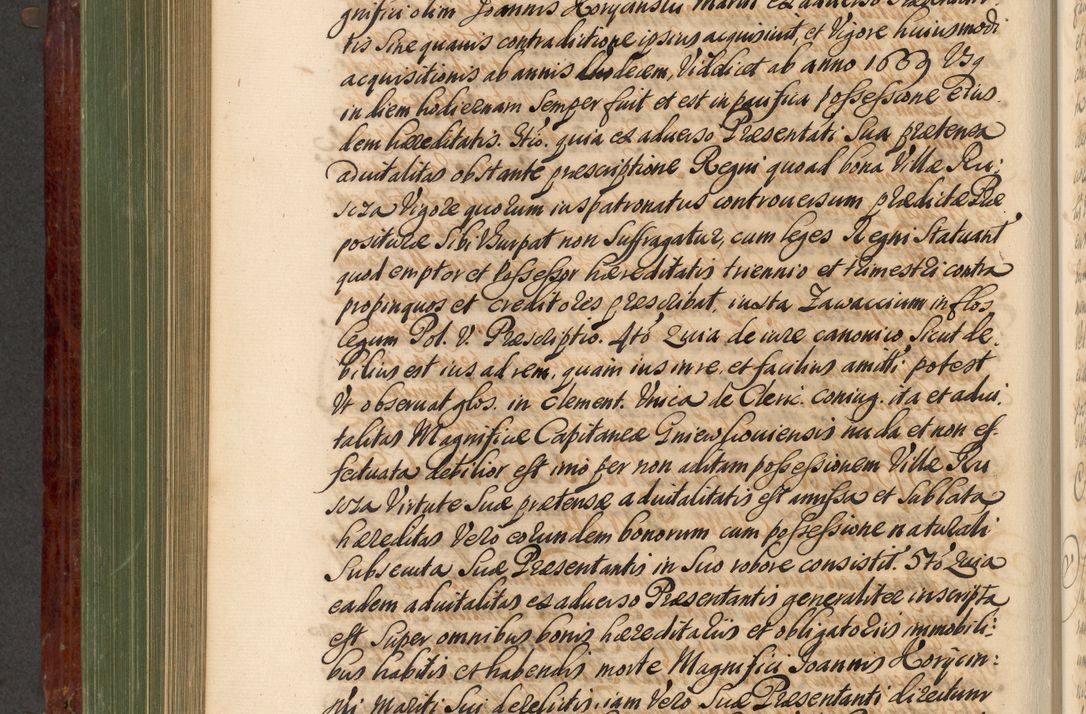 gnifici olim Joannis Korycinski mariti ex adverso Præsentan-
tis sine quavis contradictione ipsius acquisivit, et Vigore huiusmodi
acquisitionis ab annis decem, Videlicet ab anno 1639 Usq
in diem hodiernam Semper fuit et est in pacifica possessione eius-
dem hæreditatis. 3tio. quia ex adverso Præsentati Sua prætensa
advitalitas obstante præscriptione Regni quoad bona Villæ Ru-
scza Vigore quorum iuspatronatus controversum prædictæ Præ
posituræ Sibi Usurpat non Suffragatur, cum leges Regni Statuant
quod emptor et possessor hæreditatis triennio et trimestri contra
propinquos et creditores præscribat, iuxta Zawaccium in flos
legum Pol. V. Præscriptio. 4tò Quia de iure canonico Sicut de-
bilius est ius ad rem, quam ius in re, et facilius amitti potest
Ut observat glos. in Clement. Unica de Cleric. coniug. ita et advi-
talitas Magnificæ Capitaneæ Gniewkoviensis nuda et non ef-
fectuata debilior est imò per non aditam possessionem Villæ Ru
scza Virtute Suæ prætensæ advitalitatis est amissa et Sublata
hæreditas Vero eorundem bonorum cum possessione naturali
Subsecuta Suæ Præsentantis in Suo robore consistit. 5tò Quia
eadem advitalitas ex adverso Præsentantis generaliter inscripta
est Super omnibus bonis hæreditariis et obligatoriis immobili-
bus habitis et habendis morte Magnifici Joannis Korycin-
ski Mariti Sui derelictis, iam Vero Suæ Præsentanti directum